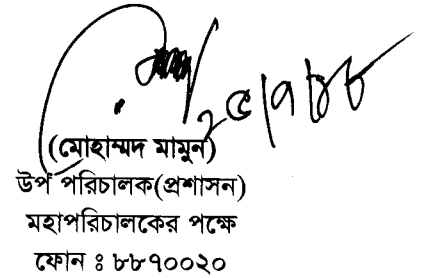 (মোহাম্মদ মামুন)
উপ পরিচালক(প্রশাসন)
মহাপরিচালকের পক্ষে
ফোন ঃ ৮৮৭০০২০